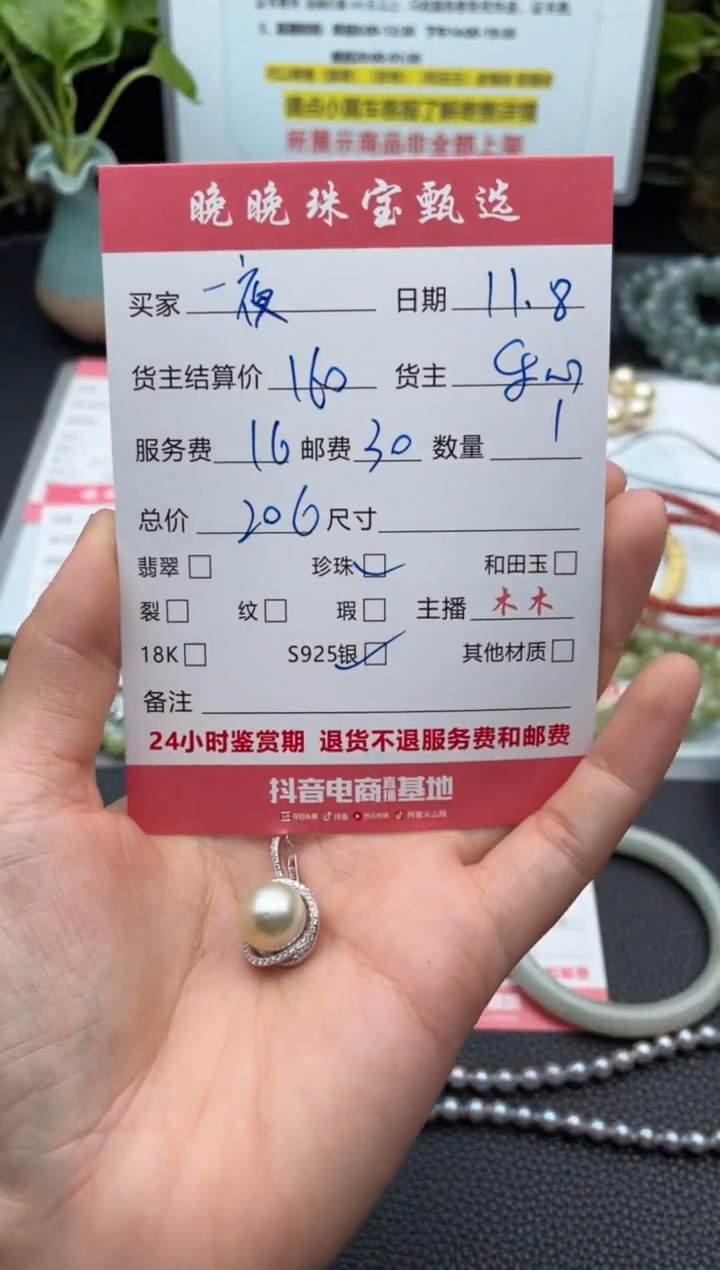 所展示商品非全部上架
晚晚珠宝甄选
买家 一夜 日期 11.8
货主结算价 160 货主
服务费 16 邮费 30 数量 1
总价 206 尺寸
翡翠 珍珠 和田玉
裂 纹 瑕 主播 木木
18K S925银 其他材质
备注
24小时鉴赏期 退货不退服务费和邮费
抖音电商直播基地
今日头条 抖音 抖音火山版